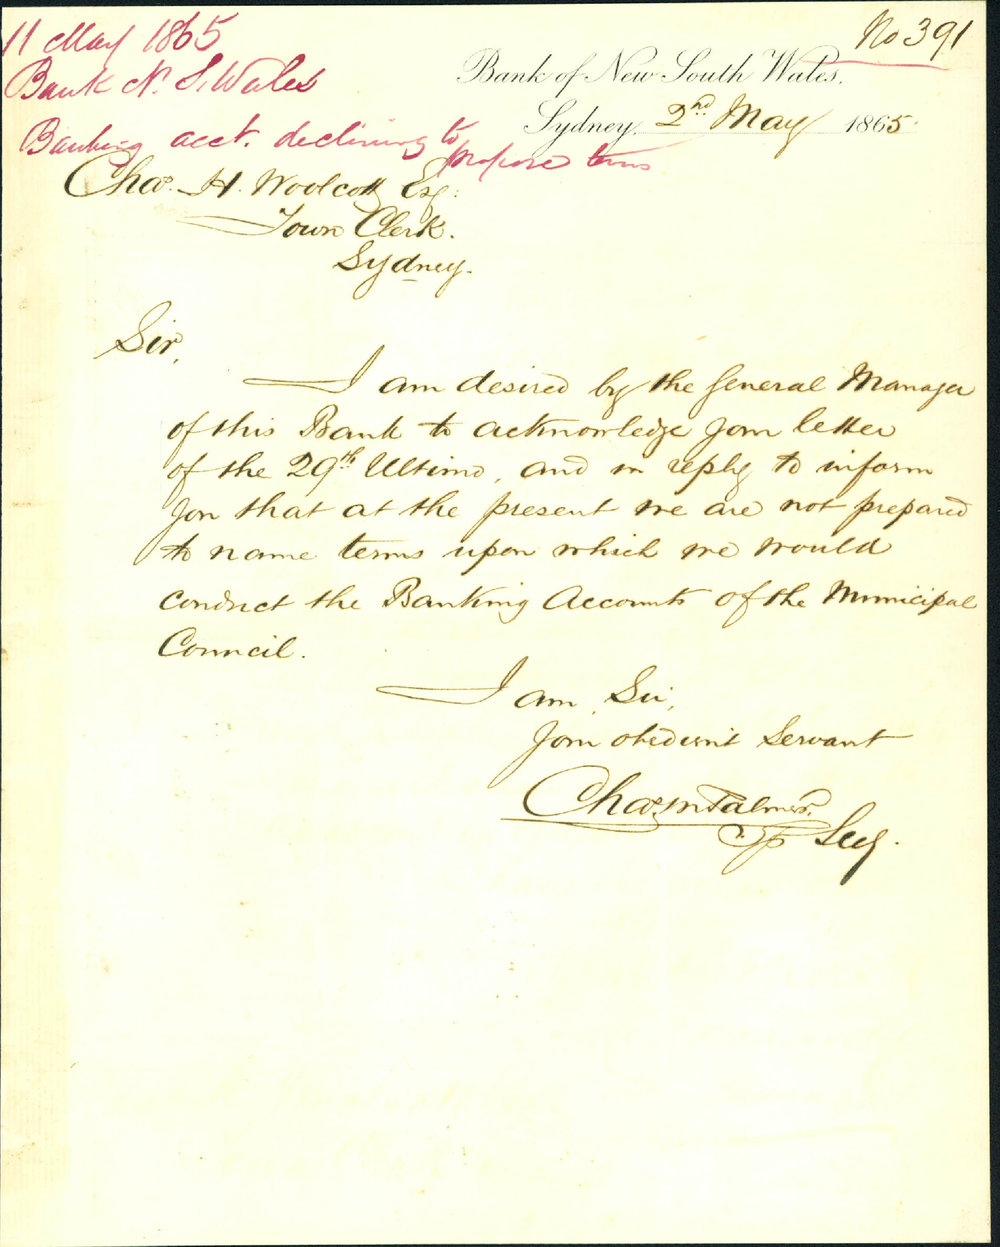 11 May 1865
Bank N. S. Wales
Banking acct. declining to
propose terms
No 391
Bank of New South Wales.
Sydney, 2nd May 1865
Chas. H. Woolcott Esq.
Town Clerk.
Sydney.
Sir,
I am desired by the General Manager
of this Bank to acknowledge your letter
of the 29th Ultimo, and in reply to inform
you that at the present we are not prepared
to name terms upon which we would
conduct the Banking Accounts of the Municipal
Council.
I am, Sir,
Your obedient Servant
Chas. M. Palmer.
Secy.